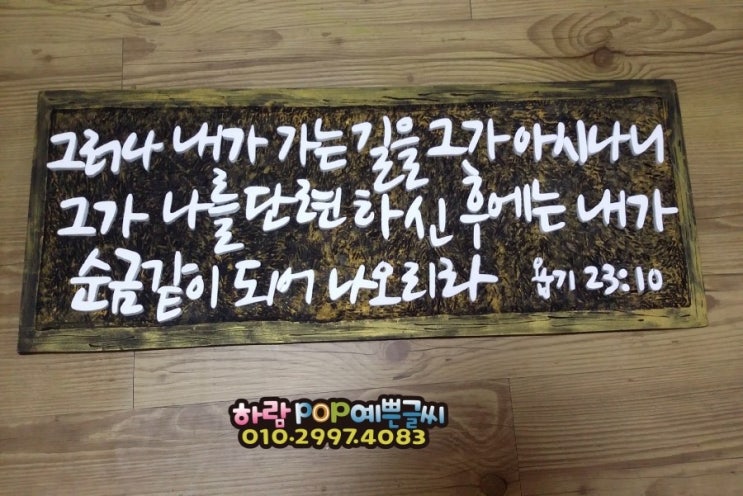 그러나 내가 가는 길을 그가 아시나니
그가 나를 단련하신 후에는 내가
순금같이 되어 나오리라 욥기 23:10
하람 POP 예쁜글씨
010·2997·4083